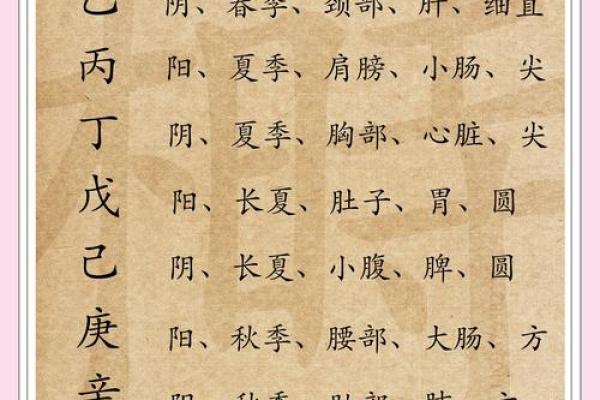 乙 阴、春季、颈部、肝、细直
丙 阳、夏季、肩膀、小肠、尖
丁 阴、夏季、胸部、心脏、尖
戊 阳、长夏、肚子、胃、圆
己 阴、长夏、小腹、脾、圆
庚 阳、秋季、腰部、大肠、方
辛 阴、秋季、